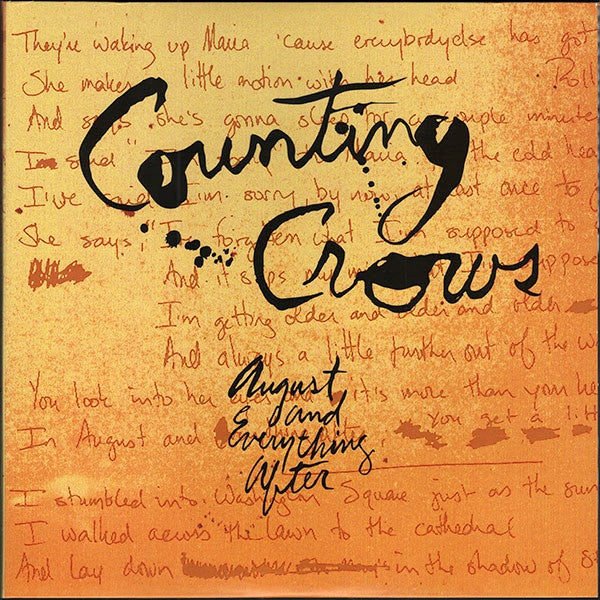 They're waking up Maria 'cause everybodyelse has got
She makes little motion with her head Roll
And says she's gonna sleep for a couple minute
Counting
I'm sorry, by now, at last once to
She says, "I'm forgotten what I'm supposed to
Crows
And it slips my
I'm getting older and older and older
And always a little further out of the w
August
and
Everything
After
You look into her it's more than your he
In August and you get a litt
I stumbled into Washington Square just as the sun
I walked across the lawn to the cathedral
And lay down in the shadow of S